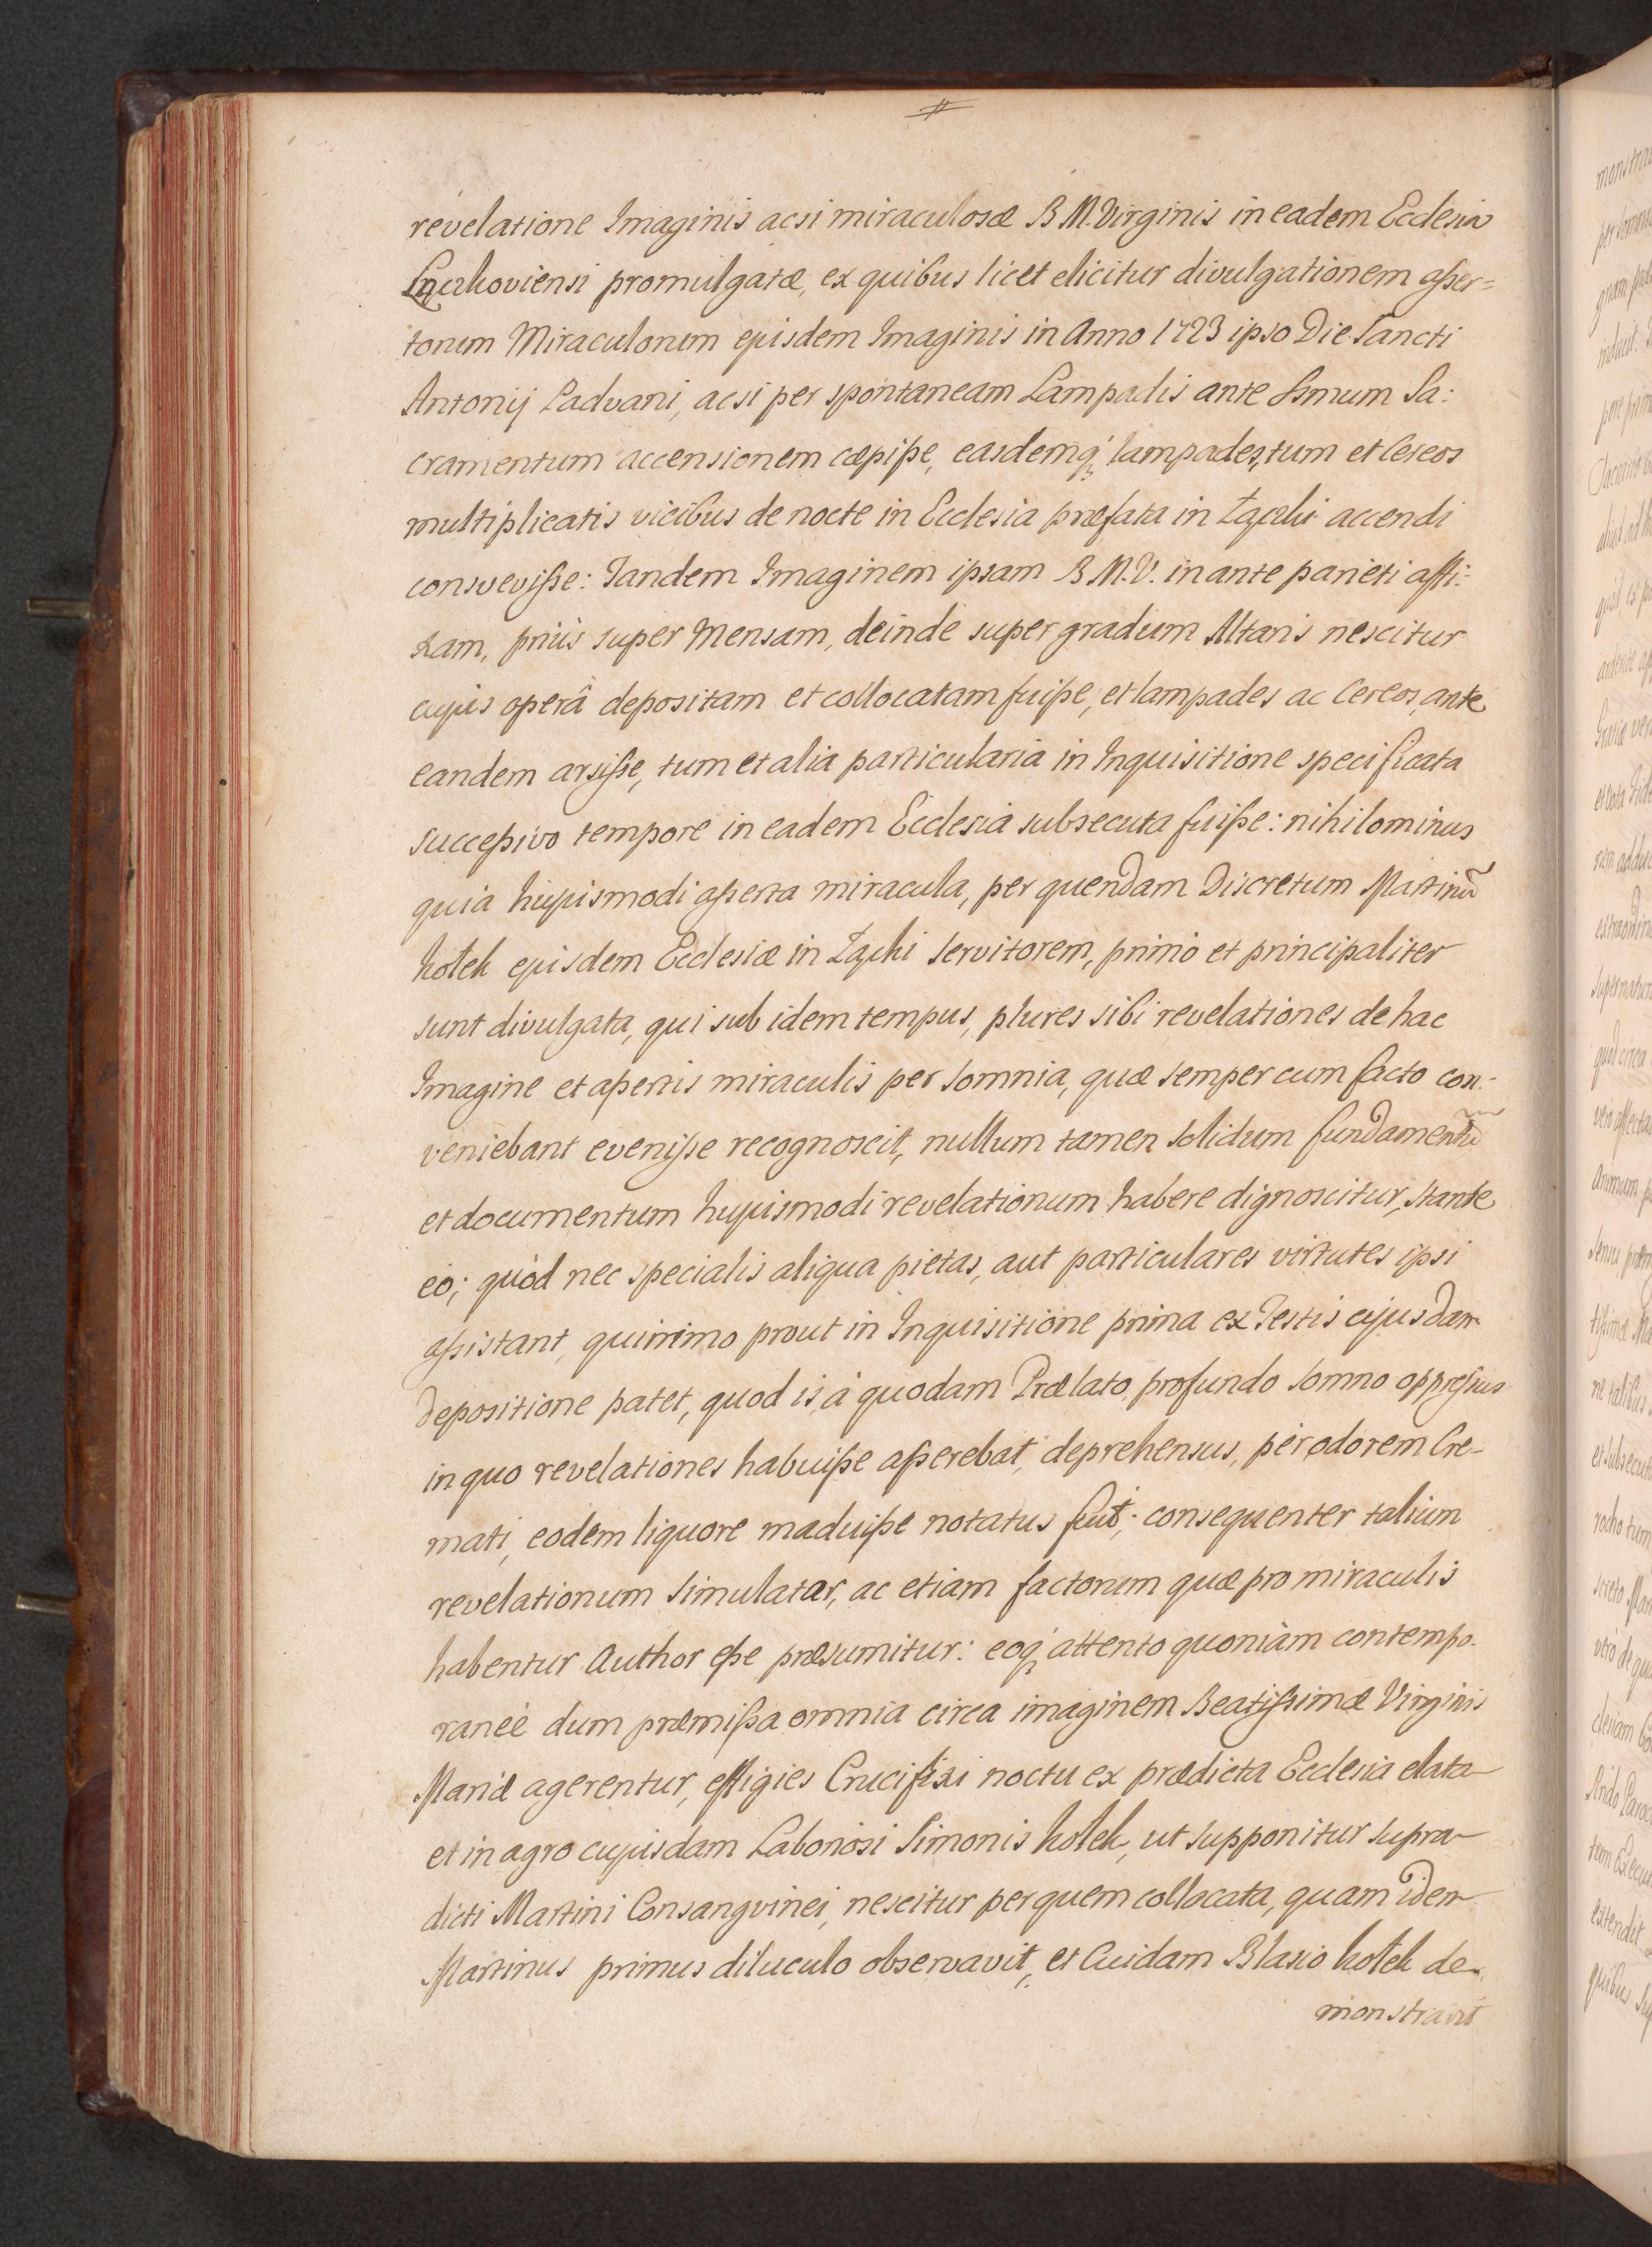 revelatione Imaginis acsi miraculosæ B M. Virginis in eadem Ecclesia
Łączkoviensi promulgatæ, ex quibus licet elicitur divulgationem asser=
torum Miraculorum ejusdem Imaginis in Anno 1723 ipso Die Sancti
Antonij Paduani, acsi per spontaneam Lampadis ante Ssmum Sa:
cramentum accensionem cæpiße, easdemq; lampades, tum et Cereos
multiplicatis vicibus de nocte in Ecclesia præfata in Łączki accendi
consveviße: Tandem Imaginem ipsam B M. V. in ante parieti affi:
xam, priùs super Mensam, deinde super gradum Altaris nescitur
cujus operâ depositam et collocatam fuiße, et lampades ac Cereos, ante
eandem arsiße, tum et alia particularia in Inquisitione specificata
succeßivo tempore in eadem Ecclesia subsecuta fuiße: nihilominus
quia hujusmodi aßerta miracula, per quendam Discretum Martinũ
kotek ejusdem Ecclesiæ in Łączki Servitorem, primò et principaliter
sunt divulgata, qui sub idem tempus, plures sibi revelationes de hac
Imagine et aßertis miraculis per somnia, quæ semper cum facto con-
veniebant eveniße recognoscit, nullum tamen solidum fundamentũ
et documentum hujusmodi revelationum habere dignoscitur, stante
eò; quòd nec specialis aliqua pietas, aut particulares virtutes ipsi
aßistant, quinimo prout in Inquisitione prima ex Testis cujusdam
depositione patet, quod is, à quodam Prælato, profundo somno oppreßus
in quo revelationes habuiße aßerebat, deprehensus, per odorem Cre-
mati, eodem liquore maduiße notatus fuit; consequenter talium
revelationum Simulator, ac etiam factorum quæ pro miraculis
habentur Author eße præsumitur: eoq; attento quoniàm contempo-
raneè dum præmißa omnia circa imaginem Beatißimæ Virginis
Mariæ agerentur, effigies Crucifixi noctu ex prædicta Ecclesia elata
et in agro cujusdam Laboriosi Simonis kotek, ut supponitur supra
dicti Martini Consangvinei, nescitur per quem collocata, quam idem
Martinus primus diluculo observavit, et Cuidam Blasio kotek de-
monstravit